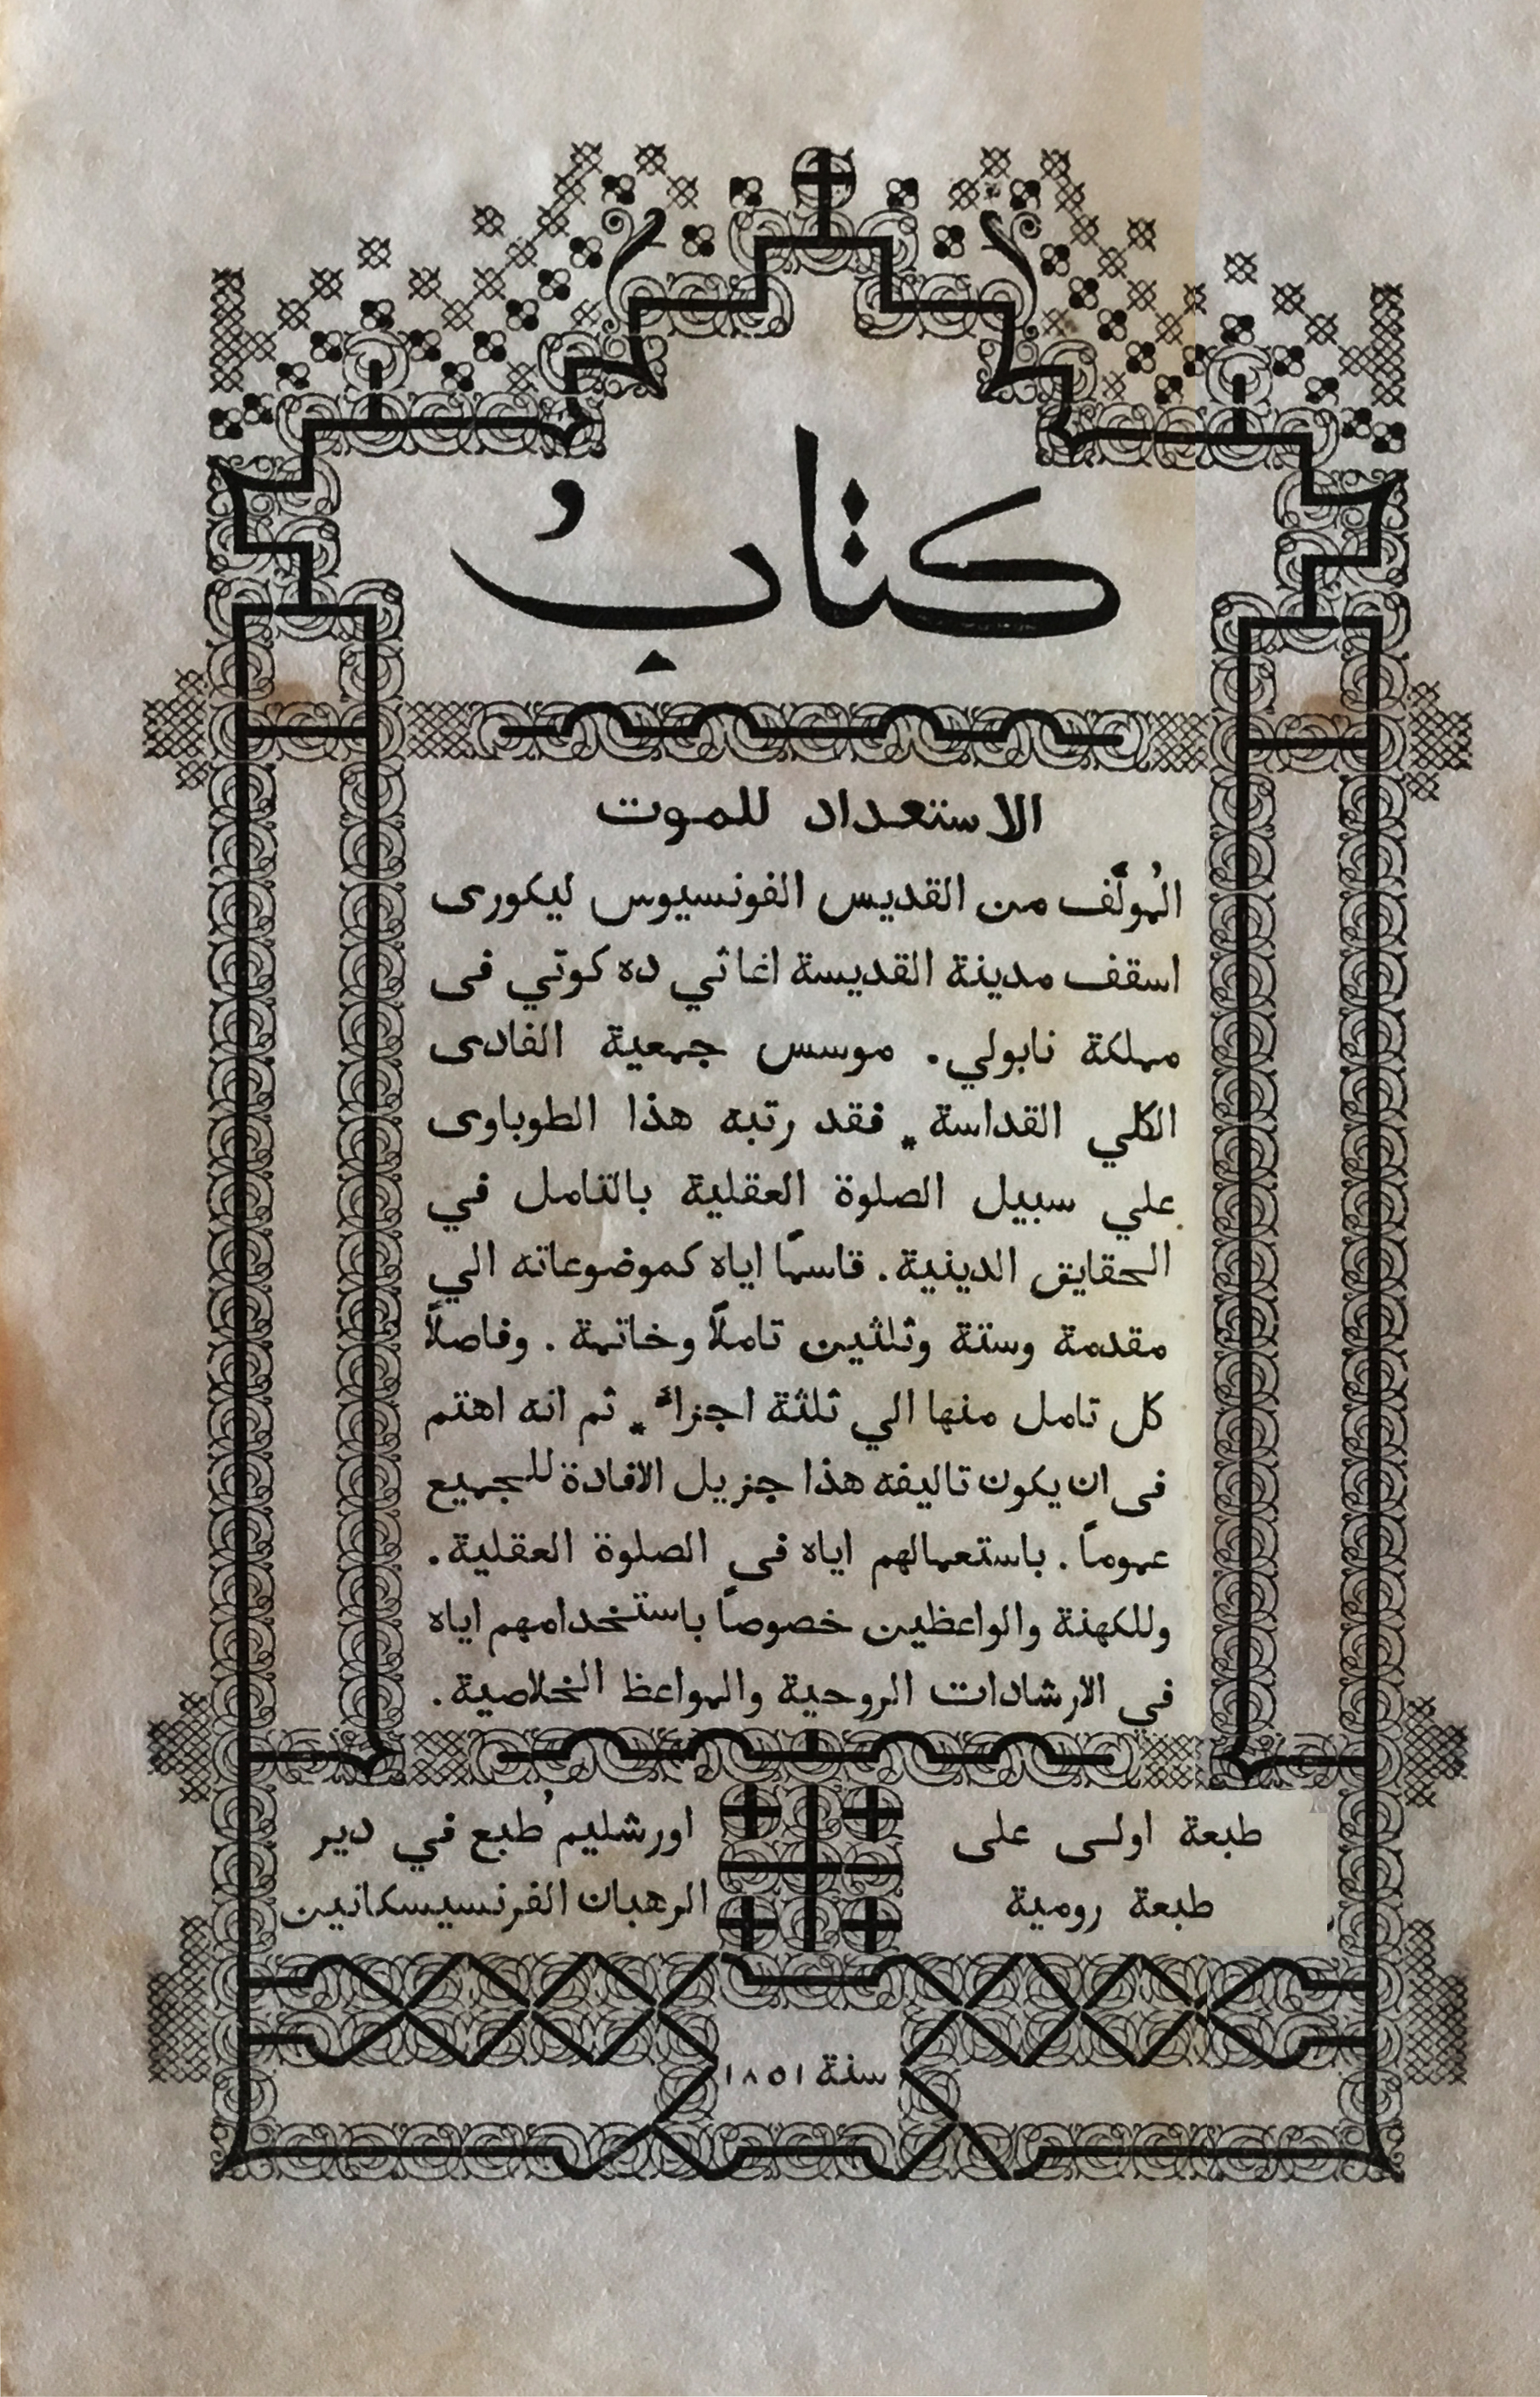 كتابُ
الاستعداد للموت
المُولَّف من القديس الفونسيوس ليكورى
اسقف مدينة القديسة اغاثي ده كوتي فى
مملكة نابولي. موسس جمعية الفادى
الكلي القداسة * فقد رتبه هذا الطوباوى
علي سبيل الصلوة العقلية بالتامل في
الحقايق الدينية. قاسمًا اياه كموضوعاته الي
مقدمة وستة وثلثين تاملًا وخاتمة. وفاصلًا
كل تامل منها الي ثلثة اجزاءٍ * ثم انه اهتم
فى ان يكون تاليفه هذا جزيل الافادة للجميع
عمومًا. باستعمالهم اياه فى الصلوة العقلية.
وللكهنة والواعظين خصوصًا باستخدامهم اياه
في الارشادات الروحية والمواعظ الخلاصية.
طبعة اولى على
طبعة رومية
اورشليم طُبع في دير
الرهبان الفرنسيسكانيين
سنة ١٨٥١